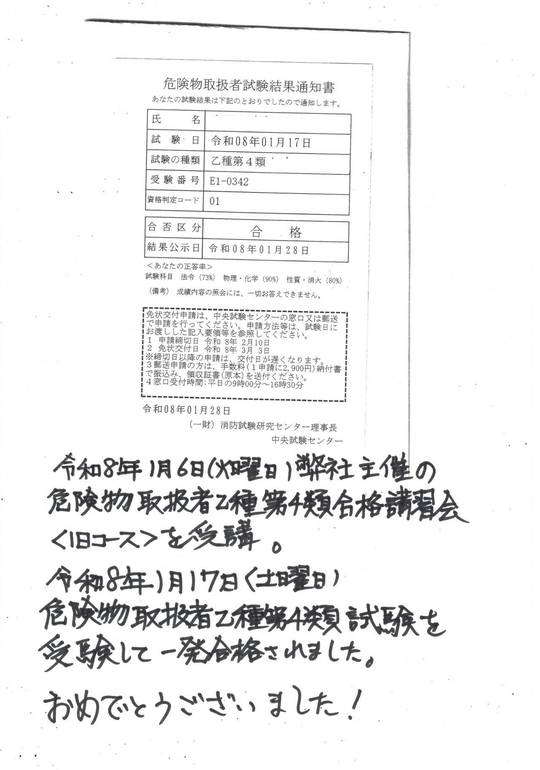 危険物取扱者試験結果通知書
あなたの試験結果は下記のとおりでしたので通知します。
氏 名
試 験 日 令和08年01月17日
試験の種類 乙種第4類
受験番号 E1-0342
資格判定コード 01
合否区分 合 格
結果公示日 令和08年01月28日
＜あなたの正答率＞
試験科目 法令（73%） 物理・化学（90%） 性質・消火（80%）
（備考） 成績内容の照会には、一切お答えできません。
免状交付申請は、中央試験センターの窓口又は郵送
で申請を行ってください。申請方法等は、試験日に
お渡しした記入要領等を参照してください。
1 申請締切日 令和 8年 2月10日
2 免状交付日 令和 8年 3月 3日
※締切日以降の申請は、交付日が遅くなります。
3 郵送申請の方は、手数料（1申請に2,900円）納付書
で振込み、領収証書（原本）を送付ください。
4 窓口受付時間：平日の9時00分～16時30分
令和08年01月28日
（一財）消防試験研究センター理事長
中央試験センター
令和8年1月6日(火曜日)弊社主催の
危険物取扱者乙種第4類合格講習会
＜1日コース＞を受講。
令和8年1月17日(土曜日)
危険物取扱者乙種第4類試験を
受験して一発合格されました。
おめでとうございました！